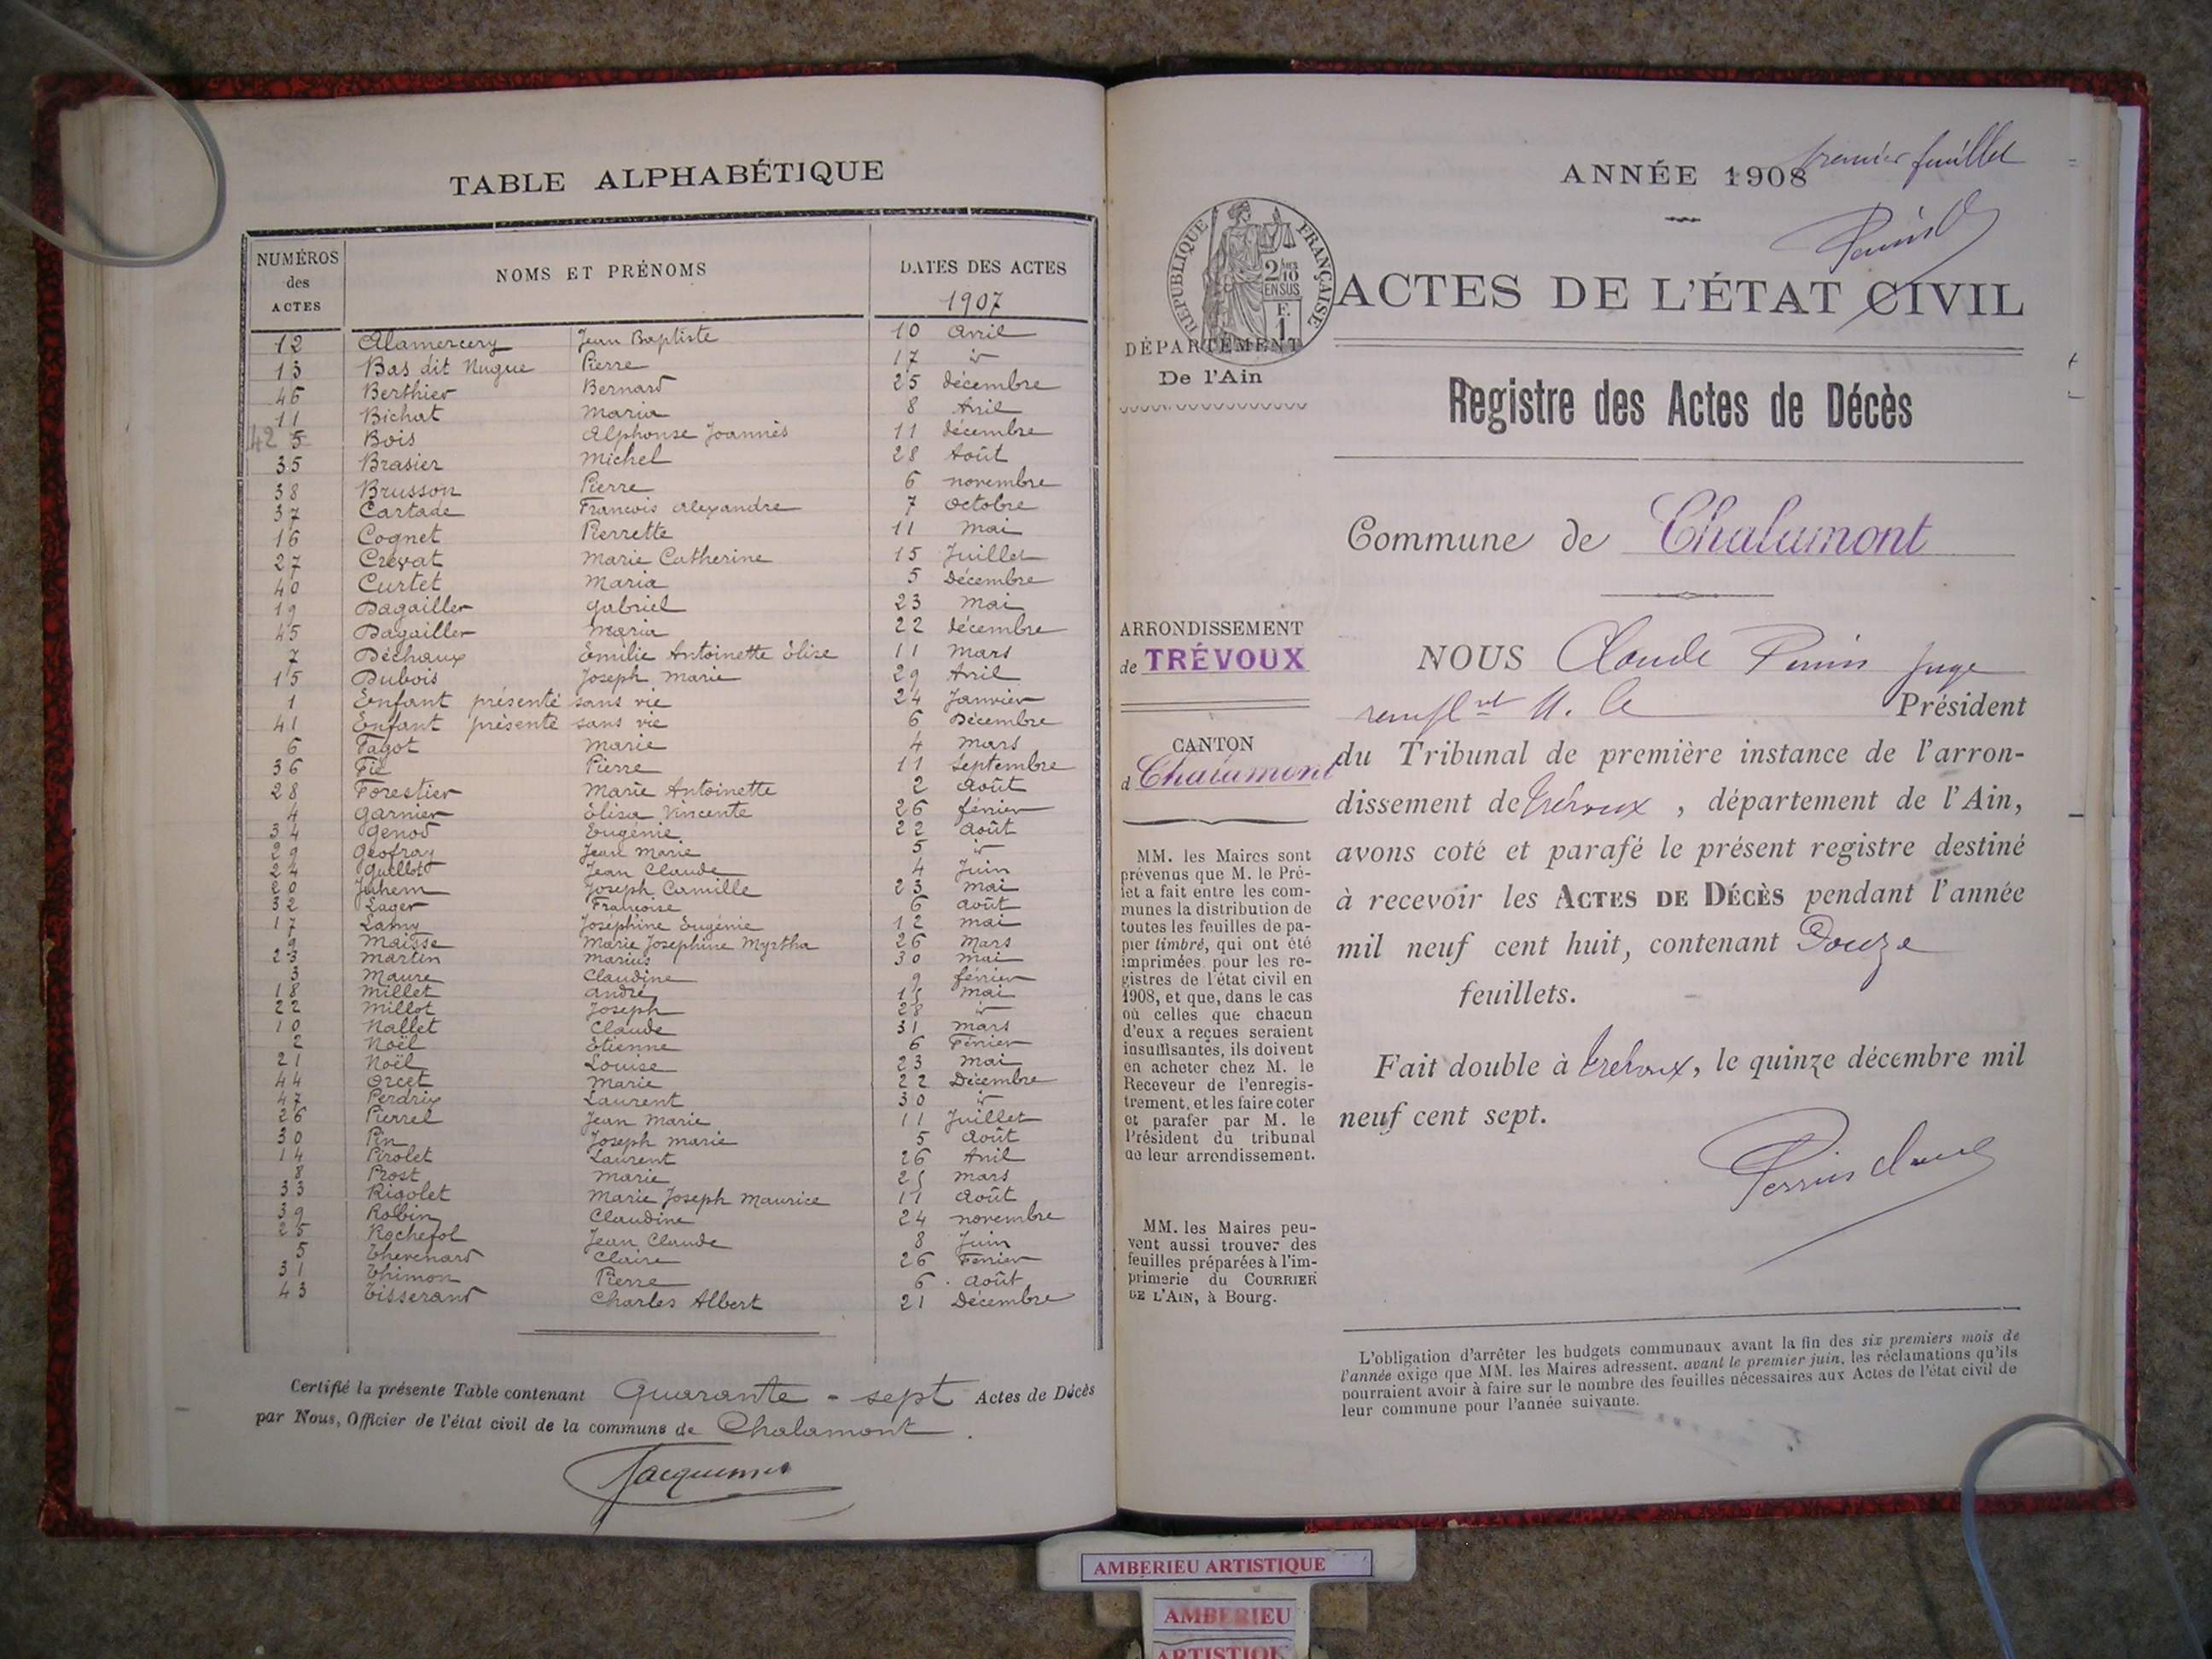 TABLE ALPHABÉTIQUE
NUMÉROS des ACTES NOMS ET PRÉNOMS DATES DES ACTES 1907
12 Alamercery Jean Baptiste 10 Avril
13 Bas dit Nugue Pierre 17 d°
46 Berthier Bernard 25 décembre
11 Bichat Maria 8 Avril
42 5 Bois Alphonse Joannès 11 décembre
35 Brasier Michel 28 Août
38 Brusson Pierre 6 novembre
37 Cartade François Alexandre 7 Octobre
16 Cognet Pierrette 11 Mai
27 Crevat Marie Catherine 15 Juillet
40 Curtet Maria 5 Décembre
19 Dagailler Gabriel 23 Mai
45 Dagailler Maria 22 décembre
7 Déchaux Emilie Antoinette Élise 11 Mars
15 Dubois Joseph Marie 29 Avril
1 Enfant présenté sans vie 24 Janvier
41 Enfant présenté sans vie 6 Décembre
6 Fagot Marie 4 Mars
36 Fié Pierre 11 Septembre
28 Forestier Marie Antoinette 2 Août
4 Garnier Élisa Vincente 26 février
34 Genod Eugénie 22 Août
29 Geofray Jean Marie 5 d°
24 Guillot Jean Claude 4 Juin
20 Juhem Joseph Camille 23 Mai
32 Lager Françoise 6 Août
17 Lamy Joséphine Eugénie 12 Mai
9 Maisse Marie Josephine Myrtha 26 Mars
23 Martin Marius 30 Mai
3 Maure Claudine 9 février
18 Millet André 15 Mai
22 Millot Joseph 28 d°
10 Nallet Claude 31 Mars
2 Noël Étienne 6 Février
21 Noël Louise 23 Mai
44 Orcet Marie 22 Décembre
47 Perdrix Laurent 30 d°
26 Pierrel Jean Marie 11 Juillet
30 Pin Joseph Marie 5 Août
14 Pirolet Laurent 26 Avril
8 Prost Marie 25 Mars
33 Rigolet Marie Joseph Maurice 11 Août
39 Robin Claudine 24 novembre
25 Rochefol Jean Claude 8 Juin
5 Thevenard Claire 26 Février
31 Thimon Pierre 6 Août
43 Tisserand Charles Albert 21 Décembre
Certifié la présente Table contenant Quarante-sept Actes de Décès
par Nous, Officier de l'état civil de la commune de Chalamont.
premier feuillet
ANNÉE 1908
RÉPUBLIQUE FRANÇAISE
2/10 EN SUS
F. 1
ACTES DE L'ÉTAT CIVIL
DÉPARTEMENT
De l'Ain
Registre des Actes de Décès
Commune de Chalamont
ARRONDISSEMENT
de TRÉVOUX
CANTON
d Chalamont
MM. les Maires sont
prévenus que M. le Pré-
fet a fait entre les com-
munes la distribution de
toutes les feuilles de pa-
pier timbré, qui ont été
imprimées pour les re-
gistres de l'état civil en
1908, et que, dans le cas
où celles que chacun
d'eux a reçues seraient
insuffisantes, ils doivent
en acheter chez M. le
Receveur de l'enregis-
trement, et les faire coter
et parafer par M. le
Président du tribunal
de leur arrondissement.
MM. les Maires peu-
vent aussi trouver des
feuilles préparées à l'im-
primerie du COURRIER
DE L'AIN, à Bourg.
NOUS Claude Perrin Juge
rempl.nt M. le Président
du Tribunal de première instance de l'arron-
dissement de Trévoux, département de l'Ain,
avons coté et parafé le présent registre destiné
à recevoir les ACTES DE DÉCÈS pendant l'année
mil neuf cent huit, contenant Douze
feuillets.
Fait double à Trévoux, le quinze décembre mil
neuf cent sept.
L'obligation d'arrêter les budgets communaux avant la fin des six premiers mois de
l'année exige que MM. les Maires adressent, avant le premier juin, les réclamations qu'ils
pourraient avoir à faire sur le nombre des feuilles nécessaires aux Actes de l'état civil de
leur commune pour l'année suivante.
AMBERIEU ARTISTIQUE
AMBERIEU